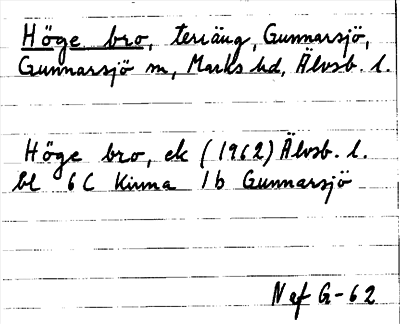 Höge bro, teriäng, Gunnarsjö,
Gunnarsjö sn, Marks hd, Älvsb. l.
Höge bro, ek (1962) Älvsb. l.
bl 6C Kinna 1b Gunnarsjö
Nef G-62